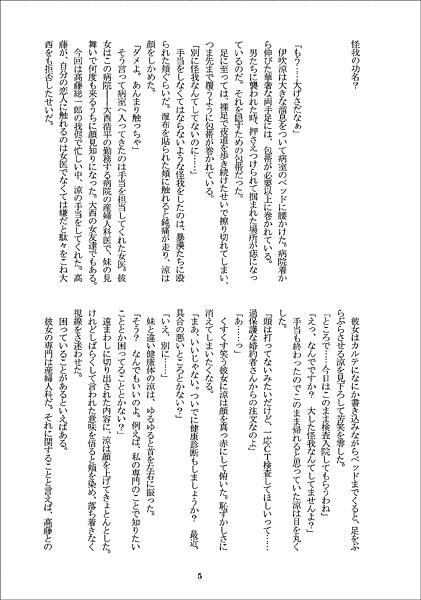 怪我の功名？
「もう……大げさだなぁ」
伊吹涼は大きな溜息をついて病室のベッドに腰かけた。病院着か
ら伸びた華奢な両手足には、包帯が必要以上に巻かれている。
男たちに襲われた時、押さえつけられて掴まれた場所が痣になっ
ているのだ。それを隠すための包帯だった。
足に至っては、裸足で夜道を歩き続けたせいで擦り切れてしまい、
つま先まで覆うように包帯が巻かれている。
「別に怪我なんてしてないのに……」
手当をしなくてはならないような怪我をしたのは、暴漢たちに殴
られた頬ぐらいだ。湿布を貼られた頬に触れると鈍痛が走り、涼は
顔をしかめた。
「ダメよ。あんまり触っちゃ」
そう言って病室へ入ってきたのは手当を担当してくれた女医。彼
女はこの病院――大西浩平の勤務する病院の産婦人科医で、妹の見
舞いで何度も来るうちに顔見知りになった。大西の女友達でもある。
今回は高藤総一郎の我侭で忙しい中、涼の手当をしてくれた。高
藤が、自分の恋人に触れるのは女医でなくては嫌だと駄々をこね大
西をも拒否したせいだ。
彼女はカルテになにか書き込みながらベッドまでくると、足をぶ
らぶらさせる涼を見下ろして苦笑を零した。
「ところで……今日はこのまま検査入院してもらうわね」
「えっ、なんでですか？　大した怪我なんてしてませんよ？」
手当も終わったのでこのまま帰れると思っていた涼は目を丸く
した。
「頭は打ってないみたいだけど、一応ＣＴ検査してほしいって……
過保護な婚約者さんからの注文なのよ」
「あ……っ」
くすくす笑う彼女に涼は顔を真っ赤にして俯いた。恥ずかしさに
消えてしまいたくなる。
「まあ、いいじゃない。ついでに健康診断もしましょうか？　最近、
具合の悪いところとかない？」
「いえ、別に……」
妹と違い健康体の涼は、ゆるゆると首を左右に振った。
「そう？　なんでもいいのよ。例えば、私の専門のことで知りたい
こととか困ってることとかない？」
遠まわしに切り出された内容に、涼は顔を上げてきょとんとした。
けれどしばらくして言われた意味を悟ると頬を染め、落ち着きなく
視線をさ迷わせた。
困っていることがあるといえばある。
彼女の専門は産婦人科だ。それに関することと言えば、高藤との
5